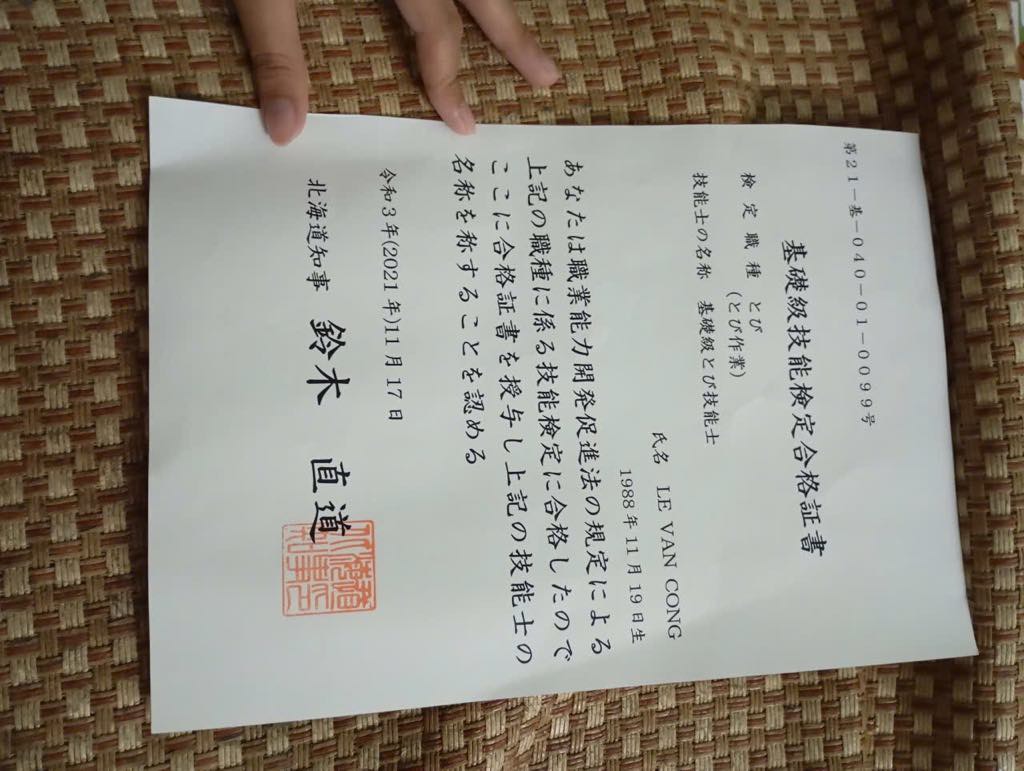 第21-基-040-01-0099号
基礎級技能検定合格証書
検定職種 とび
(とび作業)
技能士の名称 基礎級とび技能士
氏名 LE VAN CONG
1988年11月19日生
あなたは職業能力開発促進法の規定による
上記の職種に係る技能検定に合格したので
ここに合格証書を授与し上記の技能士の
名称を称することを認める
令和3年(2021年)11月17日
北海道知事 鈴木 直道